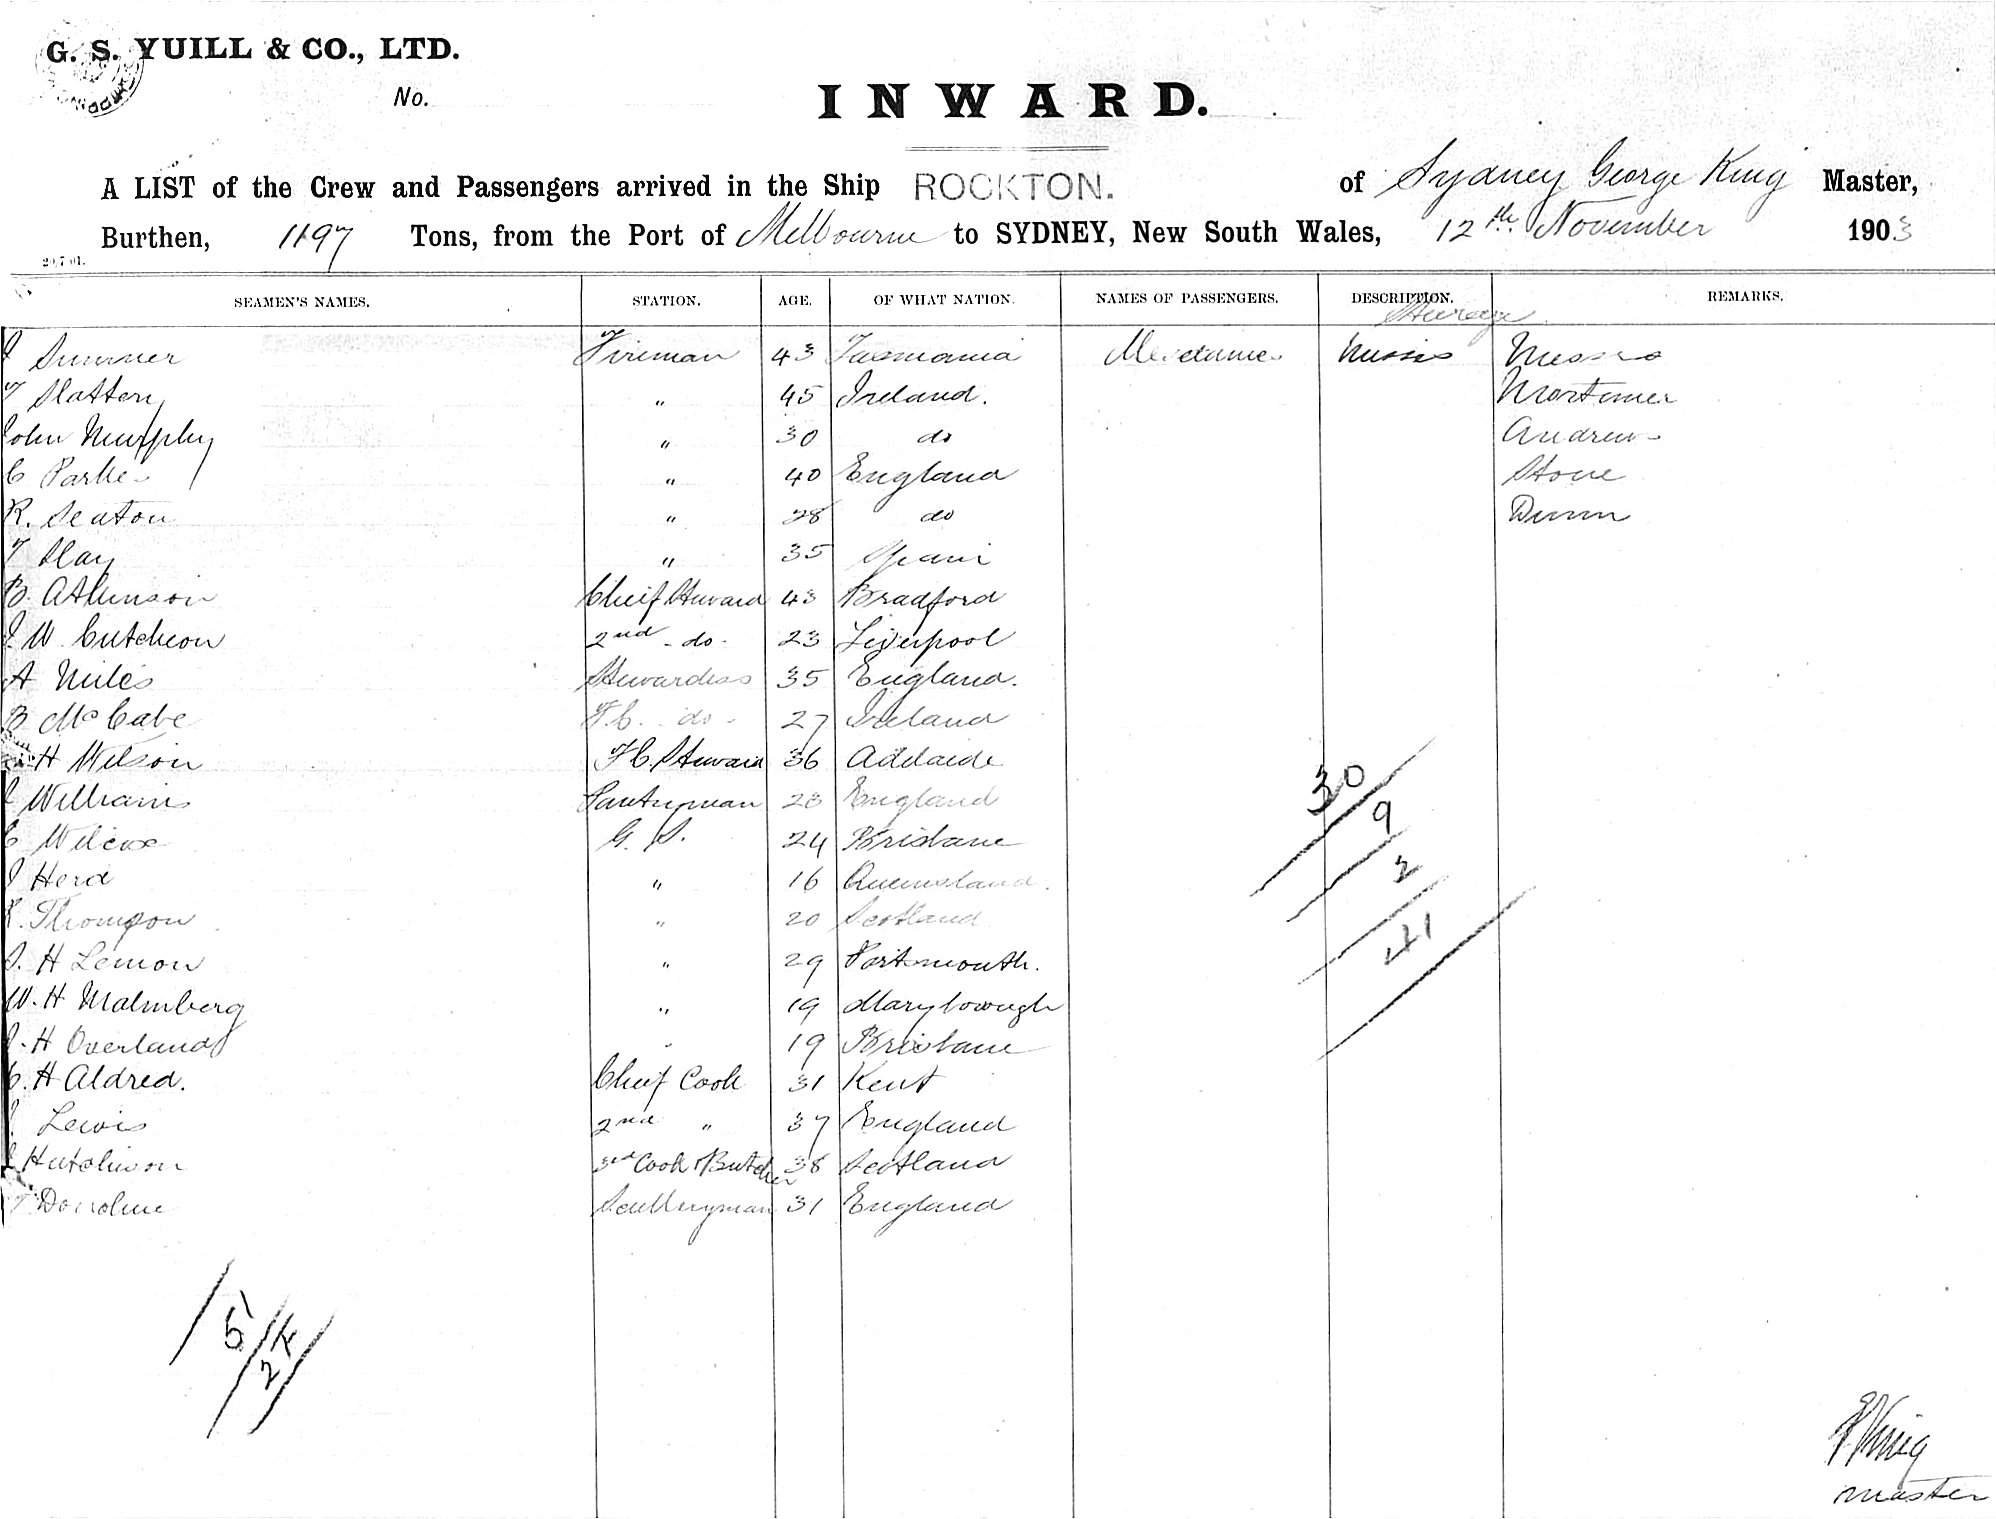 G. S. YUILL & CO., LTD.
No.
INWARD.
A LIST of the Crew and Passengers arrived in the Ship ROCKTON. of Sydney George King Master,
Burthen, 1197 Tons, from the Port of Melbourne to SYDNEY, New South Wales, 12th November 1903
20.7.01.
SEAMEN'S NAMES. STATION. AGE. OF WHAT NATION. NAMES OF PASSENGERS. DESCRIPTION. REMARKS.
Steerage
J Sumner Fireman 43 Tasmania Messrs
T Slattery " 45 Ireland. Mortimer
John Murphy " 30 do Andrew
C Parke " 40 England Stone
R. Seaton " 28 do Dunn
T Slay " 35 Spain
B. Atkinson Cheif Steward 43 Bradford
J. W. Cutcheon 2nd - do - 23 Liverpool
A Miles Stewardess 35 England.
B McCabe F.C. do - 27 Ireland
H Wilson F C. Steward 36 Adelaide
J Williams Pantryman 23 England
C Wilcox G. S. 24 Brisbane
J Herd " 16 Queensland.
R. Thompson " 20 Scotland
S. H Lemon " 29 Portsmouth.
W. H Malmberg " 19 Maryborough
J. H Overland " 19 Brisbane
C. H Aldred. Cheif Cook 31 Kent
J. Lewis 2nd " 37 England
J Hutchison 3rd Cook & Butcher 38 Scotland
T Donoline Sculleryman 31 England
30
9
2
41
5
4
2
King
Master